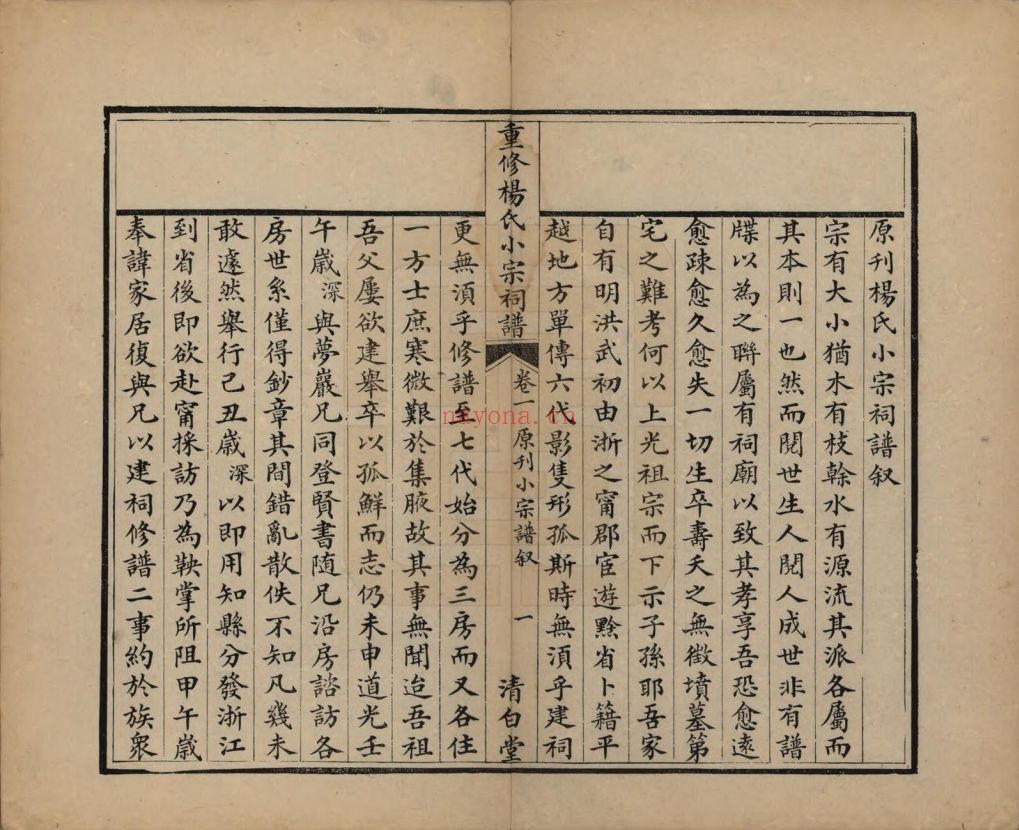 原刊楊氏小宗祠譜叙
宗有大小猶木有枝榦水有源流其派各屬而
其本則一也然而閱世生人閱人成世非有譜
牒以為之聯屬有祠廟以致其孝享吾恐愈遠
愈疎愈久愈失一切生卒壽夭之無徵墳墓第
宅之難考何以上光祖宗而下示子孫耶吾家
自有明洪武初由浙之甯郡宦遊黔省卜籍平
越地方單傳六代影隻形孤斯時無須乎建祠
重修楊氏小宗祠譜
卷一原刊小宗譜叙
一
清白堂
更無須乎修譜至七代始分為三房而又各住
一方士庶寒微艱於集腋故其事無聞迨吾祖
吾父屢欲建舉卒以孤鮮而志仍未申道光壬
午歲深與夢巖兄同登賢書隨兄沿房諮訪各
房世系僅得鈔章其間錯亂散佚不知凡幾未
敢遽然舉行己丑歲深以即用知縣分發浙江
到省後即欲赴甯採訪乃為鞅掌所阻甲午歲
奉諱家居復與兄以建祠修譜二事約於族衆
nayona.cn